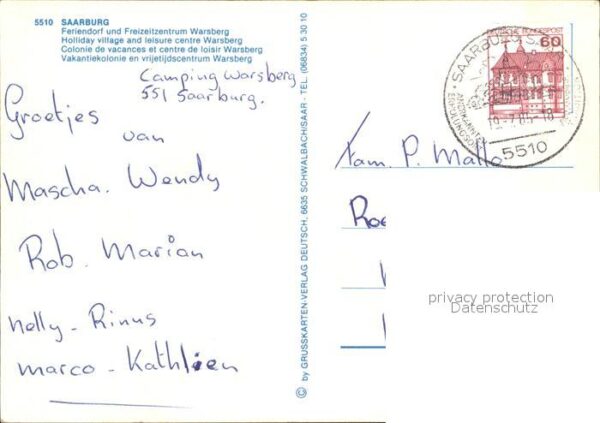 5510 SAARBURG
Feriendorf und Freizeitzentrum Warsberg
Holliday village and leisure centre Warsberg
Colonie de vacances et centre de loisir Warsberg
Vakantiekolonie en vrijetijdscentrum Warsberg
Camping Warsberg
551 Saarburg.
Groetjes
van
Mascha. Wendy
Rob. Marian
Nelly - Rinus
Marco - Kathleen
© by GRUSSKARTEN-VERLAG DEUTSCH, 6635 SCHWALBACH/SAAR · TEL. (06834) 5 30 10
DEUTSCHE BUNDESPOST
60
SAARBURG
5510
Fam. P. Matto
Roe
privacy protection
Datenschutz